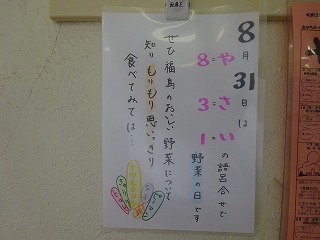 8月31日は
8=や
3=さ
1=い
の語呂合せで
野菜の日です
ぜひ福島のおいしい野菜について
知りもりもり思いっきり
食べてみては…